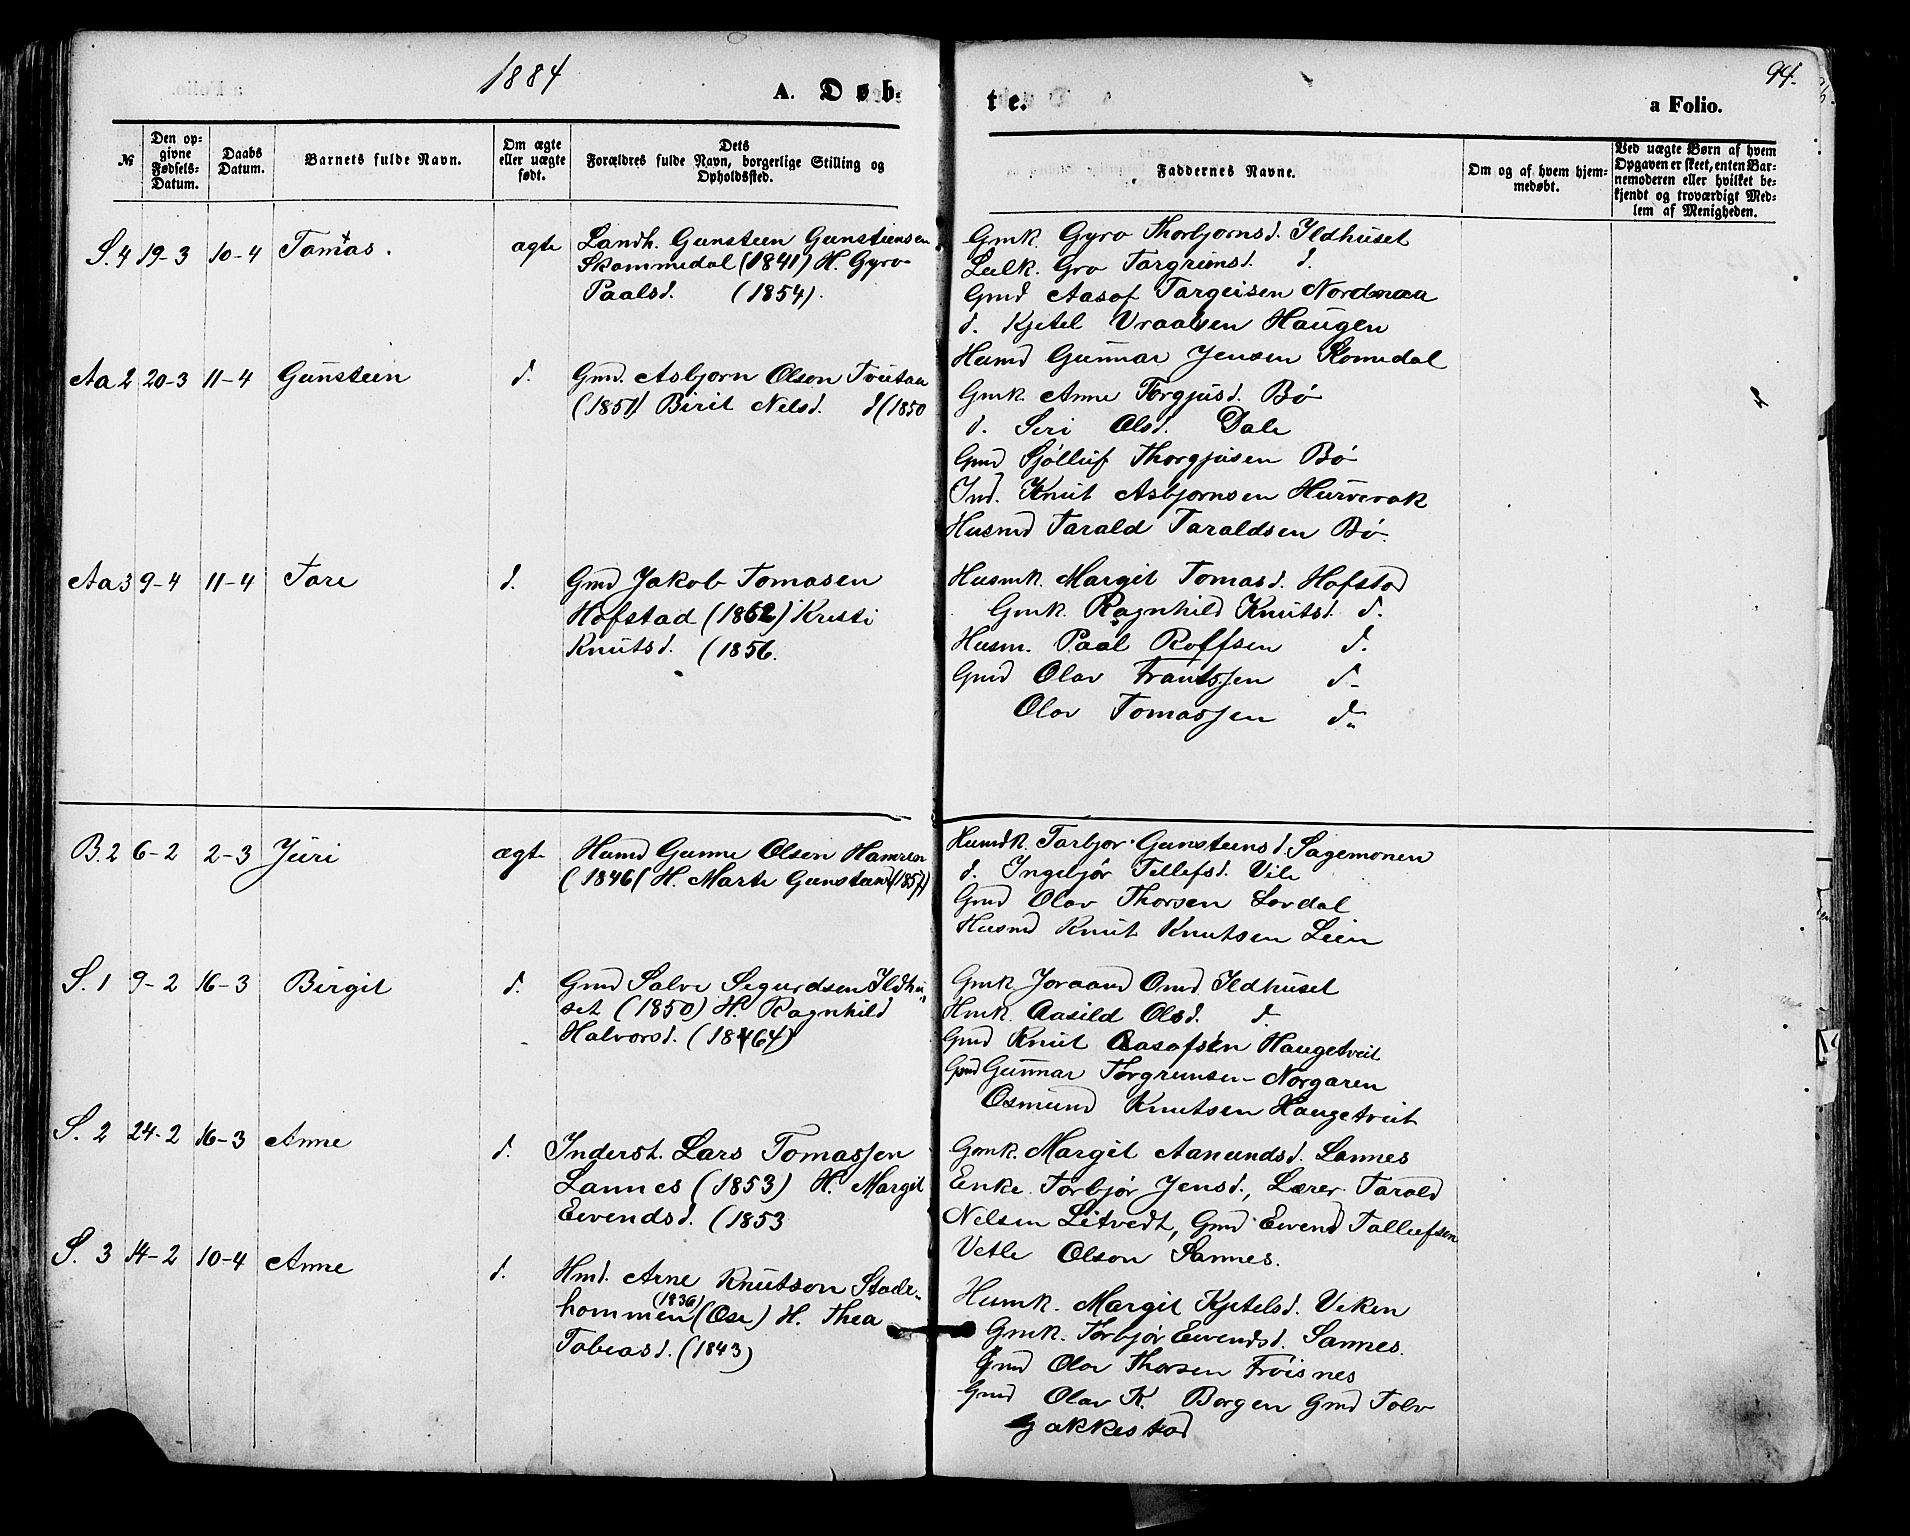 1884
A. Døb-
te.
a Folio.
94.
№
Den op-
givne
Fødsels-
Datum.
Daabs
Datum.
Barnets fulde Navn.
Om ægte
eller uægte
født.
Dets
Forældres fulde Navn, borgerlige Stilling og
Opholdssted.
Faddernes Navne.
Om og af hvem hjem-
medøbt.
Ved uægte Børn af hvem
Opgaven er skeet, enten Bar-
nemoderen eller hvilket be-
kjendt og troværdigt Med-
lem af Menigheden.
S. 4 19-3 10-4 Tomas. ægte Landh. Gunsteen Gunsteensen
Skommedal (1841) H. Gyro
Paalsd. (1854).
Gmk. Gyro Thorbjornsd. Ildhuset
Lulk. Gro Targrimsd. d.
Gmd Aasof Targeisen Nordnaa
d. Kjetel Vraalsen Haugen
Husmd Gunnar Jensen Romedal
Aa 2 20-3 11-4 Gunsteen d. Gmd. Asbjorn Olson Tveitaa
(1851) Birit Nelsd. d (1850
Gmk. Anne Torgjusd. Bø
d. Siri Olsd. Dale
Gmd Sjølluf Thorgjusen Bø
Ind. Knut Asbjornsen Hurverak
Husmd Tarald Taraldsen Bø.
Aa 3 9-4 11-4 Tore d. Gmd Jakob Tomasen
Hofstad (1862) Kristi
Knutsd. (1856.
Husmk. Margit Tomasd. Hofstad
Gmk. Ragnhild Knutsd. d.
Husm. Paal Roffsen d.
Gmd Olav Frantssen d.
Olav Tomassen d.
B. 2 6-2 2-3 Juri ægte Husmd Gunne Olsen Hamren
(1846( H. Marte Gunsteensd (1857)
Husmdk. Tarbjor Gunsteensd. Sagemonen
d. Ingebjør Tellefsd. Vile
Gmd Olav Thorsen Lovdal
Husmd Knut Knutsen Leien
S. 1 9-2 16-3 Birgit d. Gmd Salve Segurdsen Ildhu-
set (1850) H. Ragnhild
Halvorsd. (1864)
Gmk. Joraand Omd Ildhuset
Hmk. Aasild Olsd. d.
Gmd Knut Aasofsen Haugetveit
Gmd Gunnar Torgrimsen Norgaren
Osmund Knutsen Haugetveit
S. 2 24-2 16-3 Anne d. Inderst. Lars Tomassen
Lannes (1853) H. Margit
Eivendsd. (1853
Gmk. Margit Aanundsd. Lannes
Enke Torbjør Jensd., Lærer Tarald
Nelsen Litvedt, Gmd Eivend Tallefsen
Vetle Olson Sannes.
S. 3 14-2 10-4 Anne d. Hmd. Arne Knutson Stode-
hommen (1836) (Ose) H. Thea
Tobeasd. (1843)
Husmk. Margit Kjetelsd. Veken
Gmk. Torbjør Eivendsd. Sannes.
Gmd Olav Thorsen Frøisnes
Gmd Olav K. Borgen Gmd Tolv
Gakkestad